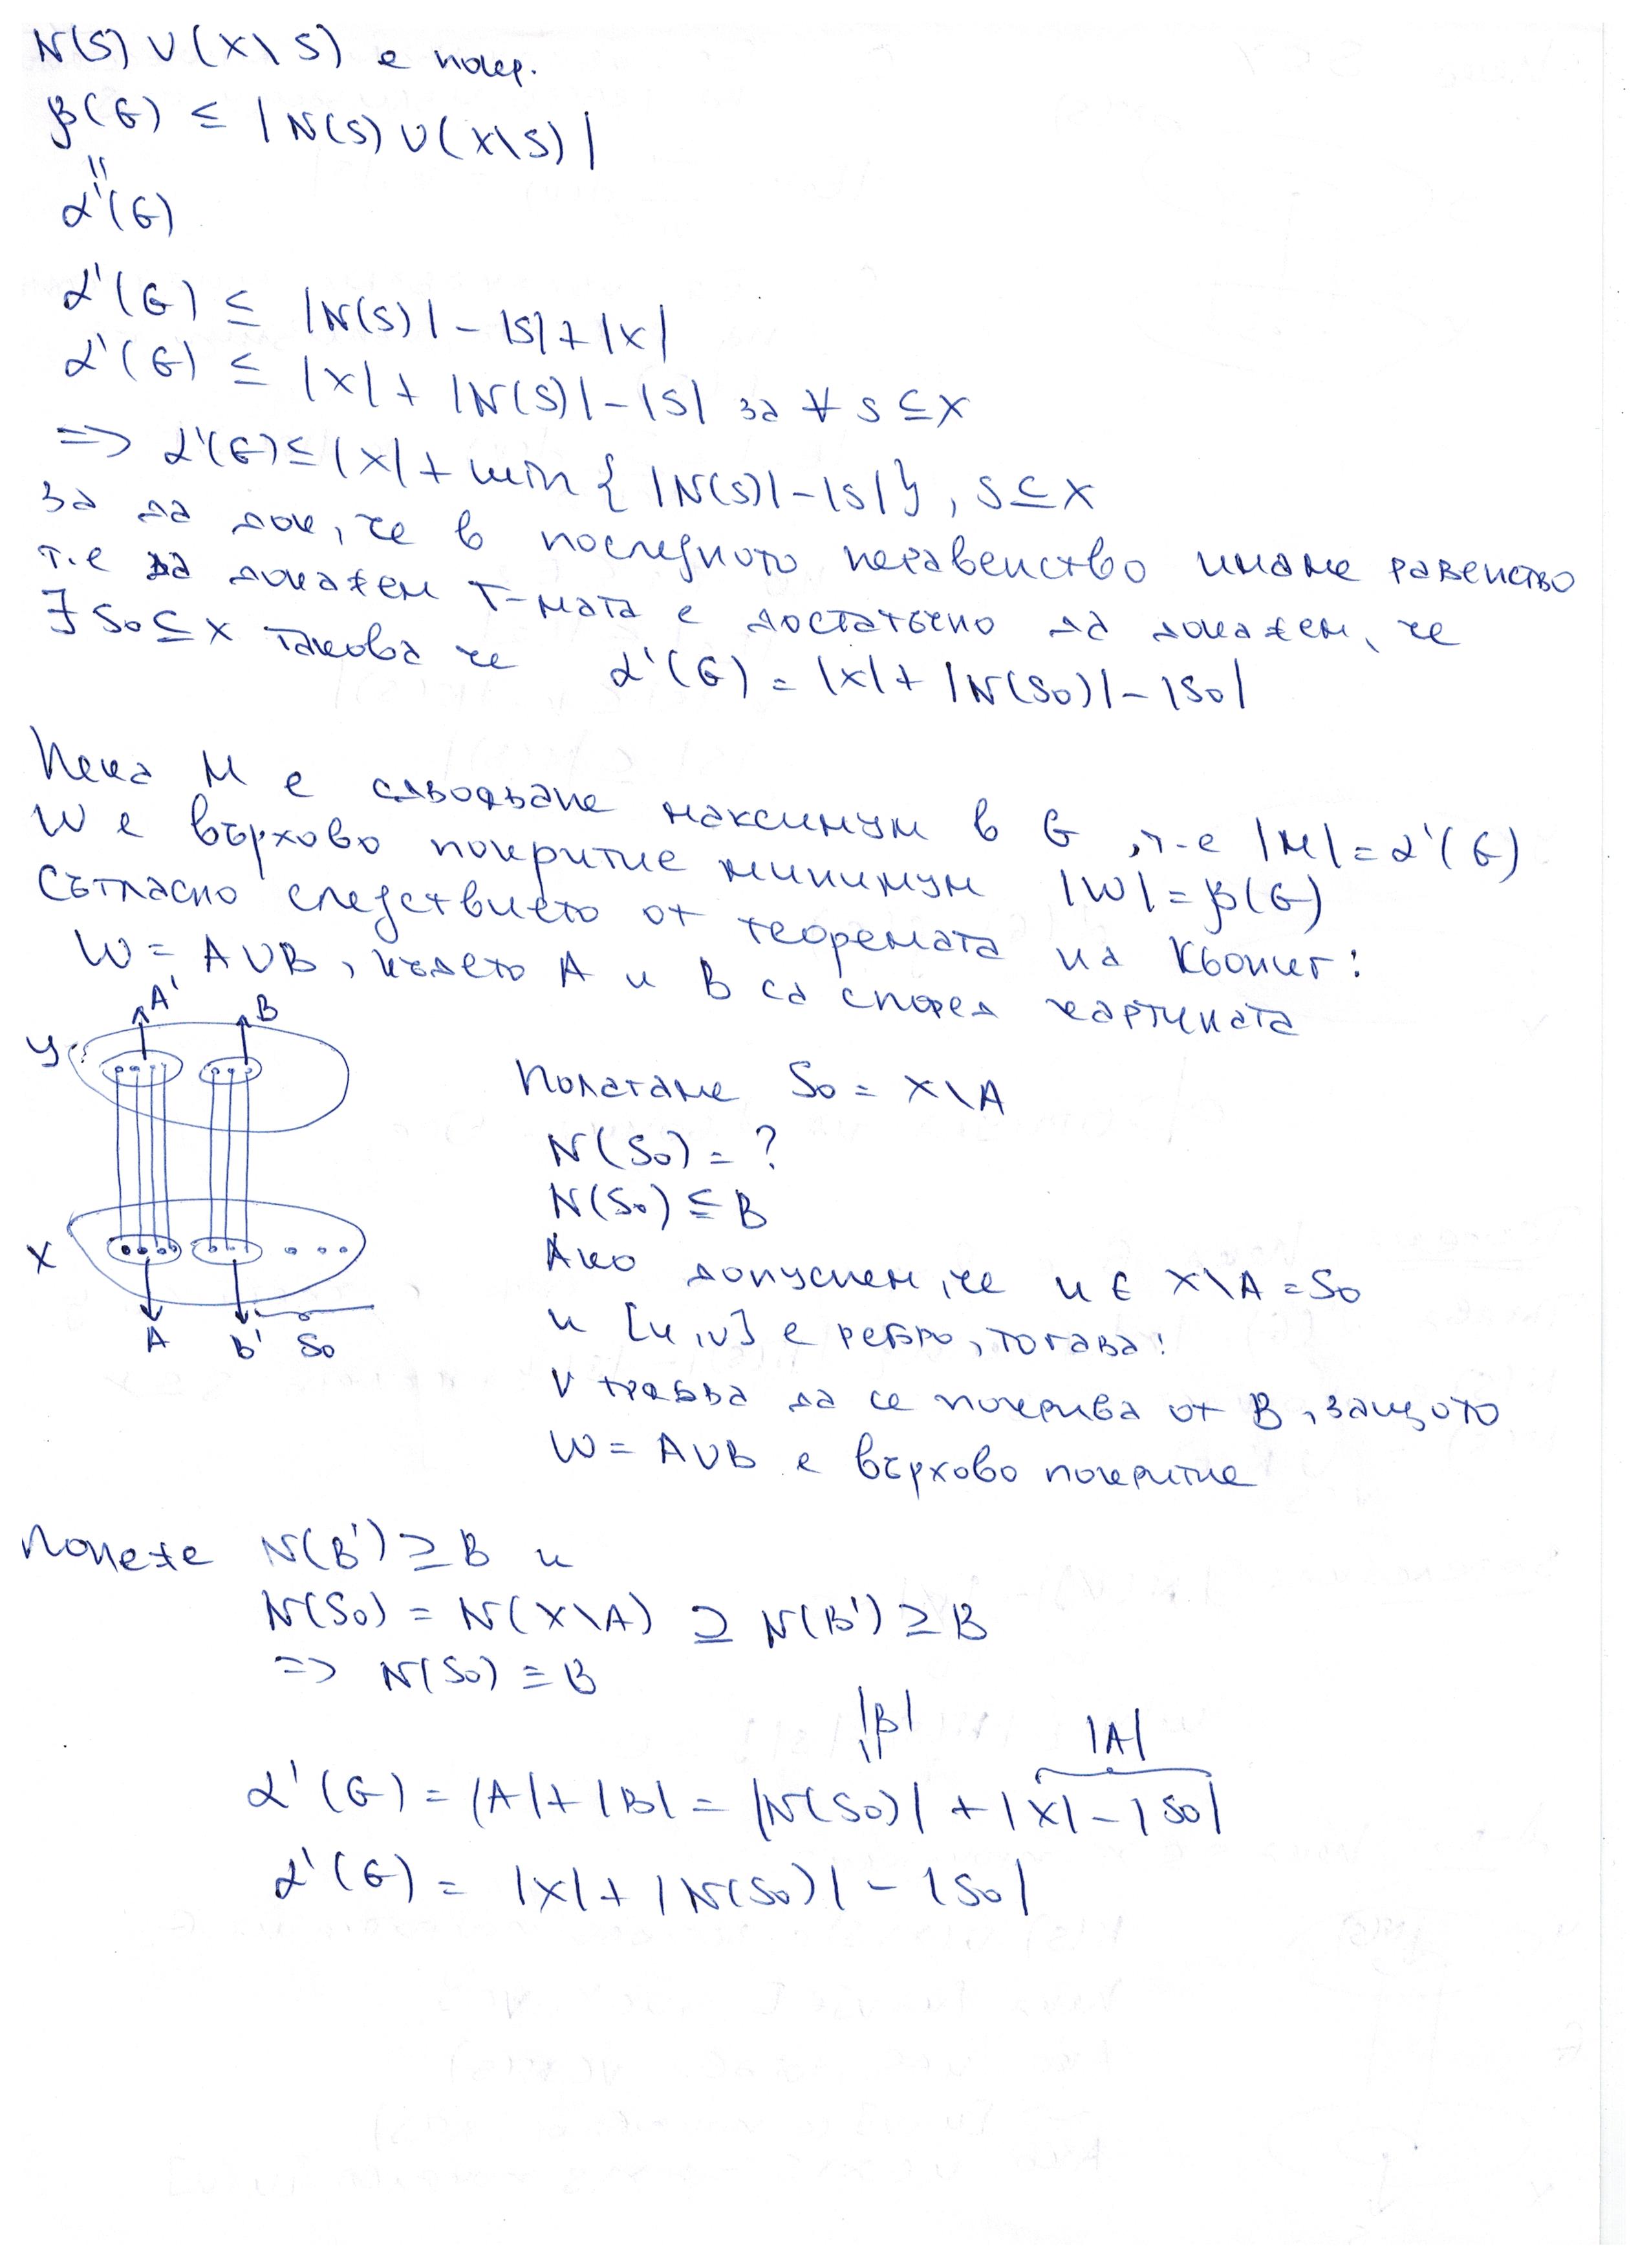 N(S) ∪ (X \ S) е покр.
β(G) ≤ |N(S) ∪ (X\S)|
=
α'(G)
α'(G) ≤ |N(S)| - |S| + |X|
α'(G) ≤ |X| + |N(S)| - |S| за ∀ S ⊆ X
=> α'(G) ≤ |X| + min { |N(S)| - |S| }, S ⊆ X
За да док, че в последното неравенство имаме равенство
т.е да докажем Т-мата е достатъчно да докажем, че
∃ S₀ ⊆ X такова че α'(G) = |X| + |N(S₀)| - |S₀|
Нека M е сдвояване максимум в G, т-е |M| = α'(G)
W е върхово покритие минимум |W| = β(G)
Съгласно следствието от теоремата на Кьониг:
W = A ∪ B, където A и B са според картината
A' B
Y
X
A B' S₀
Полагаме S₀ = X \ A
N(S₀) = ?
N(S₀) ⊆ B
Ако допуснем, че u ∈ X \ A = S₀
и [u, v] е ребро, тогава:
v трябва да се покрива от B, защото
W = A ∪ B е върхово покритие
Понеже N(B') ⊇ B и
N(S₀) = N(X \ A) ⊇ N(B') ⊇ B
=> N(S₀) = B
|B| |A|
=
α'(G) = |A| + |B| = |N(S₀)| + |X| - |S₀|
α'(G) = |X| + |N(S₀)| - |S₀|